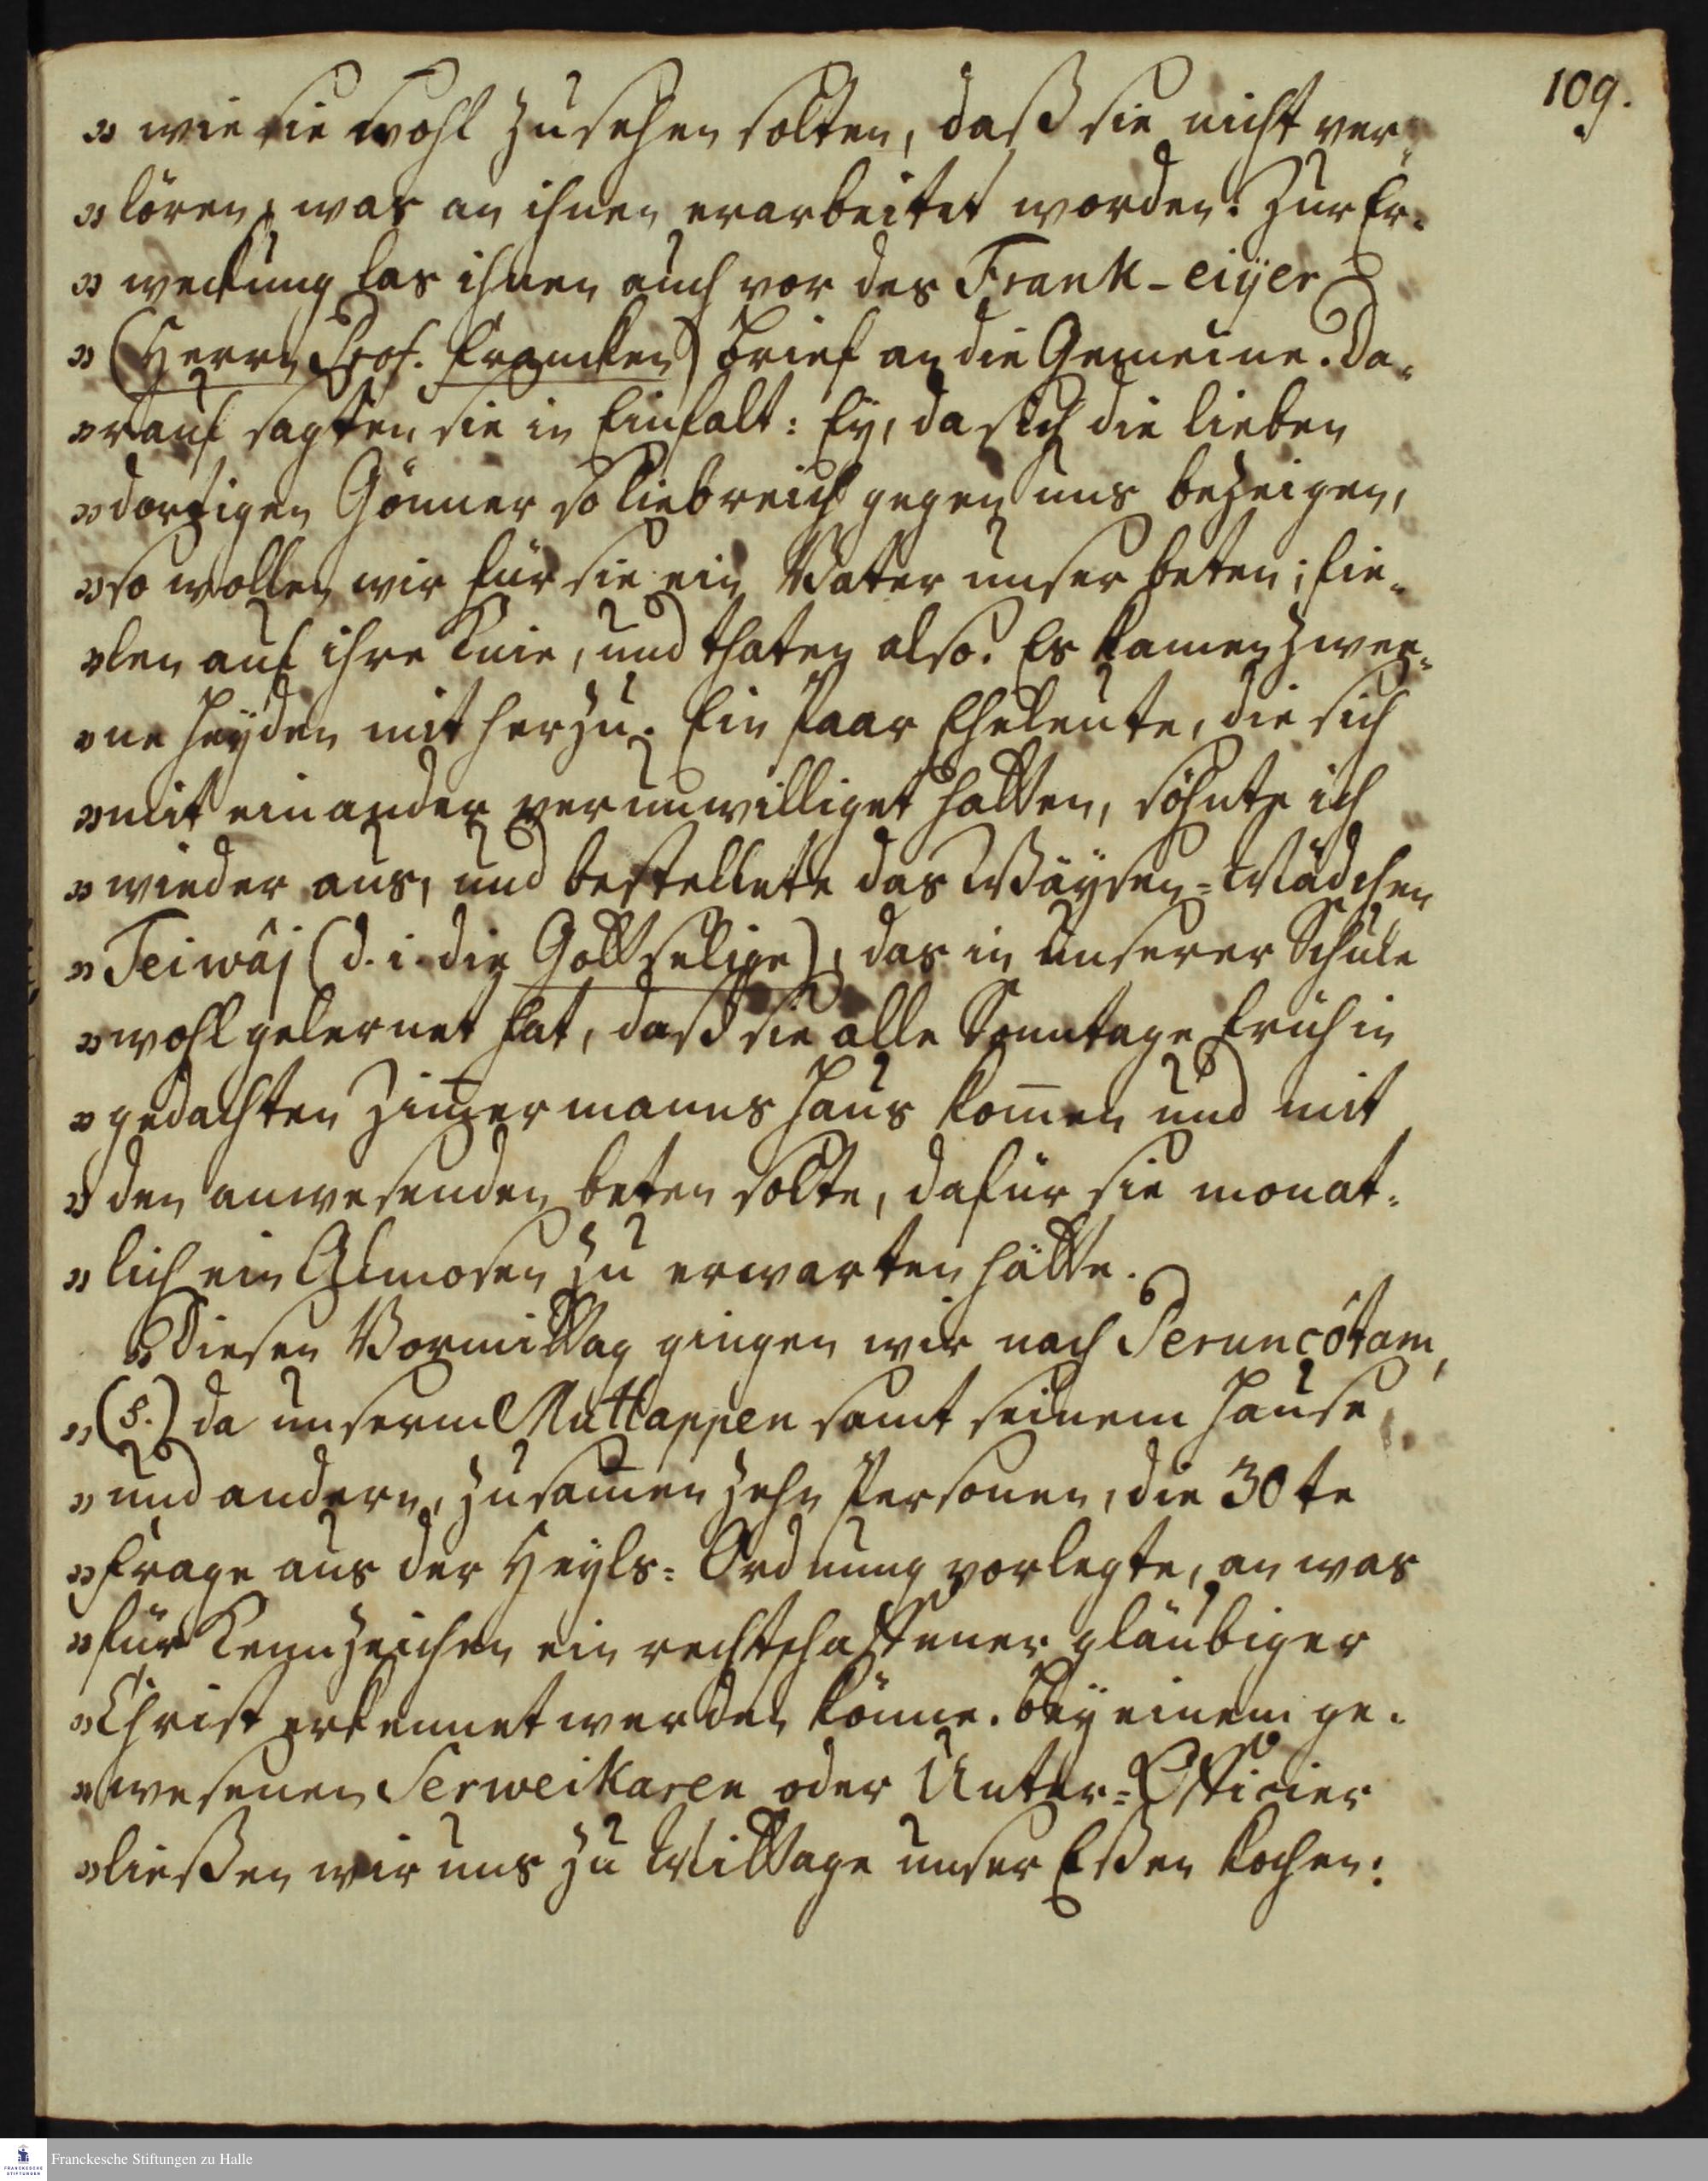 109.
„ wie sie wohl zusehen solten, daß sie nicht ver„
„ lören, was an ihnen erarbeitet worden. Zur Er„
„ weckung las ihnen auch vor des Frank-eijer
„ (Herrn Prof. Francken) Brief an die Gemeine. Da„
„ rauf sagten sie in Einfalt: Ey, da sich die lieben
„ dortigen Gönner so liebreich gegen uns bezeigen,
„ so wollen wir für sie ein Vater unser beten; fie„
„ len auf ihre Knie, und thaten also. Es kamen zwee„
„ ne Heyden mit herzu. Ein paar Eheleute, die sich
„ mit einander verunwilliget hatten, söhnte ich
„ wieder aus, und bestellete das Wäysen-Mädchen
„ Teiwâj (d. i. die Gottselige), das in unserer Schule
„ wohl gelernet hat, daß sie alle Sonntage früh in
„ gedachten Zim̄ermanns Haus kom̄en und mit
„ den anwesenden beten solte, dafür sie monat„
„ lich ein Almosen zu erwarten hätte.
„ Diesen Vormittag gingen wir nach Peruncótam,
„ (§.) da unserm Muttappen samt seinem Hause
„ und andern, zusam̄en zehn Personen, die 30te
„ Frage aus der Heyls-Ordnung vorlegte, an was
„ für Kennzeichen ein rechtschaffener gläubiger
„ Christ erkennet werden könne. Bey einem ge„
„ wesenen Serweikaren oder Unter-Officier
„ ließen wir uns zu Mittage unser Eßen kochen:
Franckesche Stiftungen zu Halle
FRANCKESCHE STIFTUNGEN